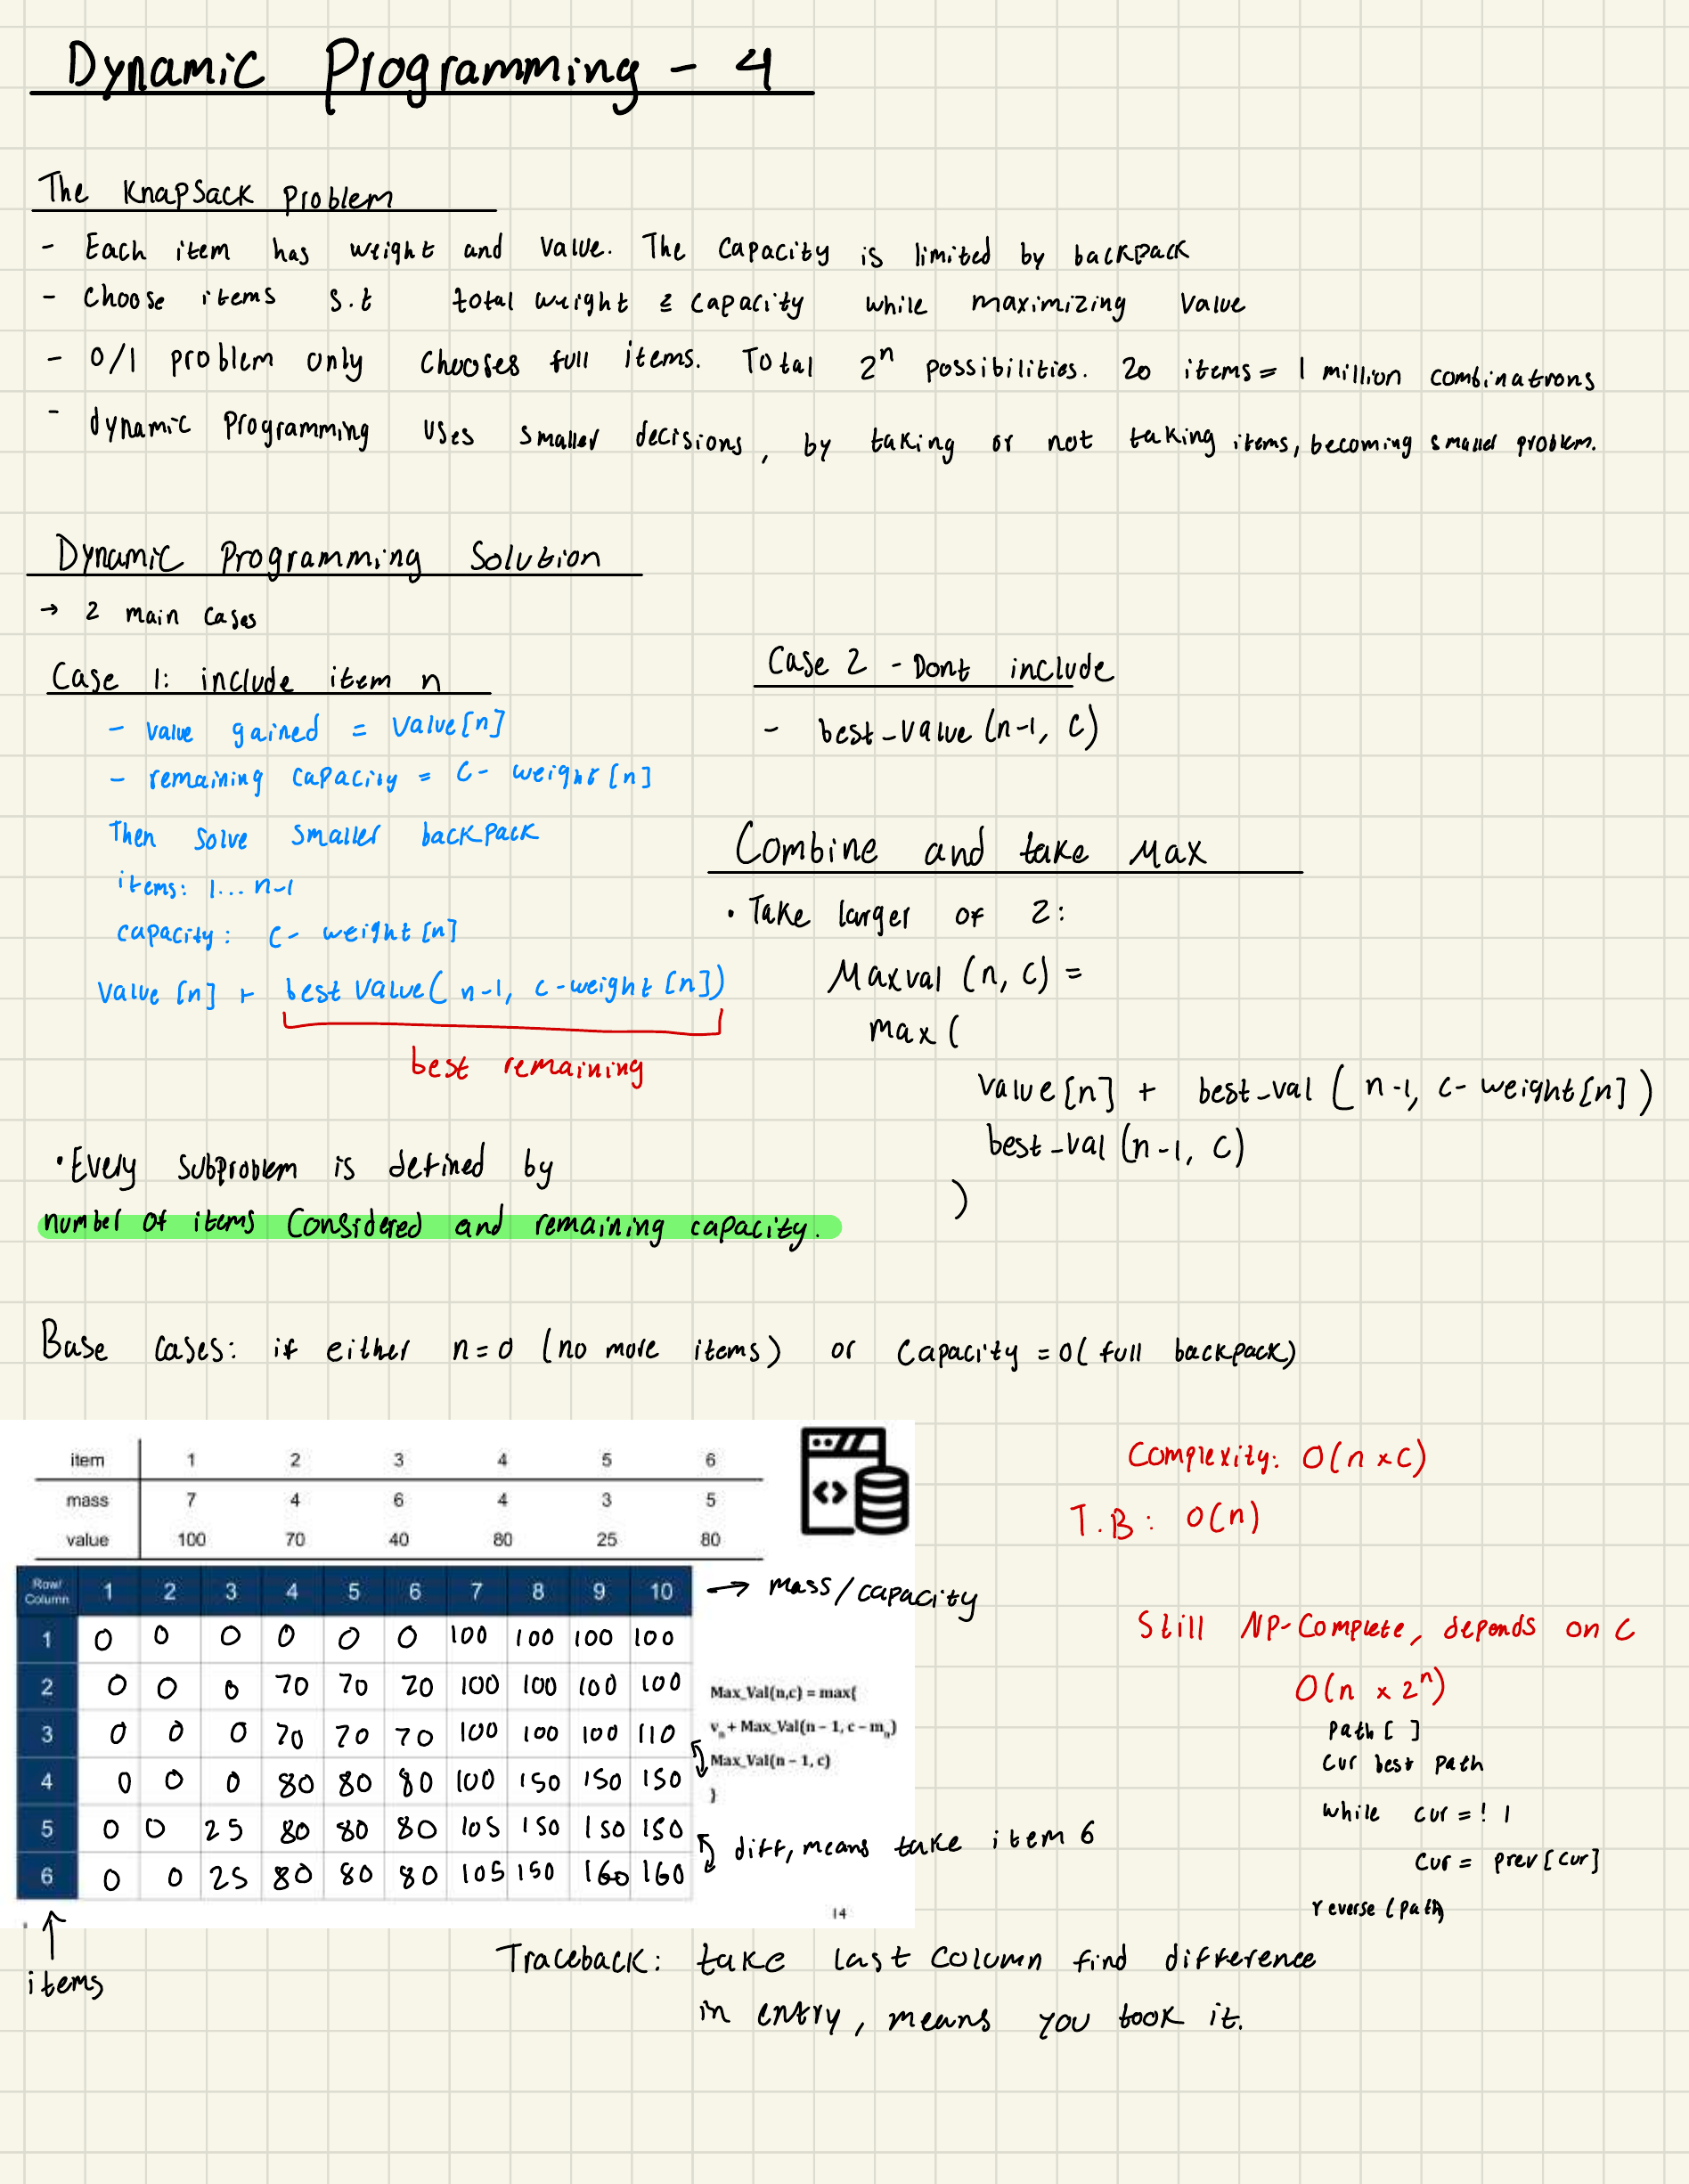 Dynamic Programming - 4
The Knapsack Problem
- Each item has weight and value. The capacity is limited by backpack
- Choose items s.t total weight ≤ capacity while maximizing value
- 0/1 problem only chooses full items. Total 2^n possibilities. 20 items = 1 million combinations
- dynamic programming uses smaller decisions, by taking or not taking items, becoming smaller problem.
Dynamic Programming Solution
→ 2 main cases
Case 1: include item n
- value gained = value[n]
- remaining capacity = c - weight[n]
Then solve smaller backpack
items: 1...n-1
capacity: c - weight[n]
value [n] + best value(n-1, c-weight[n])
best remaining
Case 2 - Dont include
- best_value (n-1, c)
Combine and take Max
• Take larger of 2:
Maxval (n, c) =
max (
value[n] + best_val (n-1, c-weight[n])
best_val (n-1, c)
)
• Every subproblem is defined by
number of items considered and remaining capacity.
Base cases: if either n=0 (no more items) or capacity = 0 (full backpack)
item 1 2 3 4 5 6
mass 7 4 6 4 3 5
value 100 70 40 80 25 80
Row/Column 1 2 3 4 5 6 7 8 9 10 → mass/capacity
1 0 0 0 0 0 0 100 100 100 100
2 0 0 0 70 70 70 100 100 100 100
3 0 0 0 70 70 70 100 100 100 110
4 0 0 0 80 80 80 100 150 150 150
5 0 0 25 80 80 80 105 150 150 150
6 0 0 25 80 80 80 105 150 160 160
Max_Val(n,c) = max{
v_n + Max_Val(n - 1, c - m_n)
Max_Val(n - 1, c)
}
diff, means take item 6
14
↑
items
Complexity: O(n x c)
T.B: O(n)
Still NP-Complete, depends on c
O(n x 2^n)
path [ ]
cur best path
while cur =! 1
cur = prev[cur]
reverse (path)
Traceback: take last column find difference
in entry, means you took it.